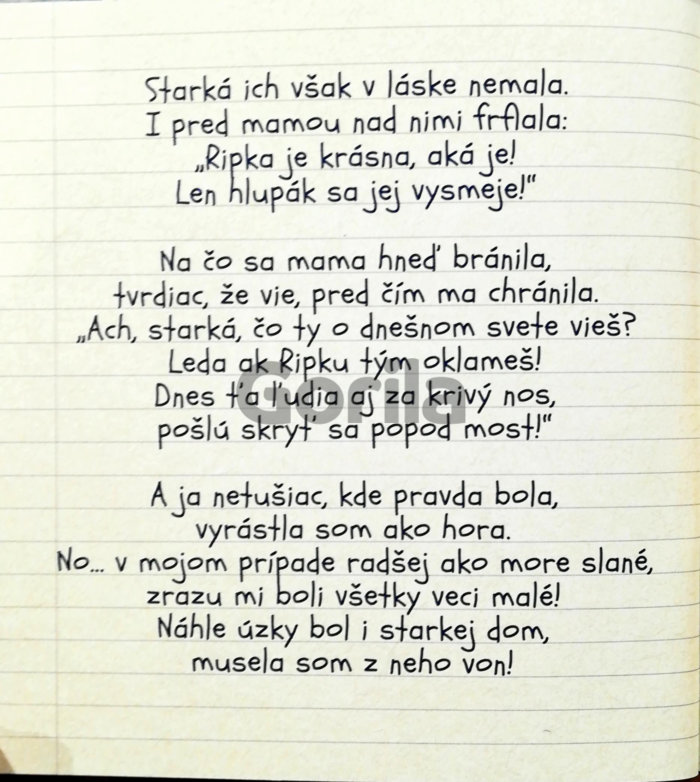 Starká ich však v láske nemala.
I pred mamou nad nimi frflala:
„Ripka je krásna, aká je!
Len hlupák sa jej vysmeje!“
Na čo sa mama hneď bránila,
tvrdiac, že vie, pred čím ma chránila.
„Ach, starká, čo ty o dnešnom svete vieš?
Leda ak Ripku tým oklameš!
Dnes ťa ľudia aj za krivý nos,
pošlú skryť sa popod most!“
Gorila
A ja netušiac, kde pravda bola,
vyrástla som ako hora.
No... v mojom prípade radšej ako more slané,
zrazu mi boli všetky veci malé!
Náhle úzky bol i starkej dom,
musela som z neho von!